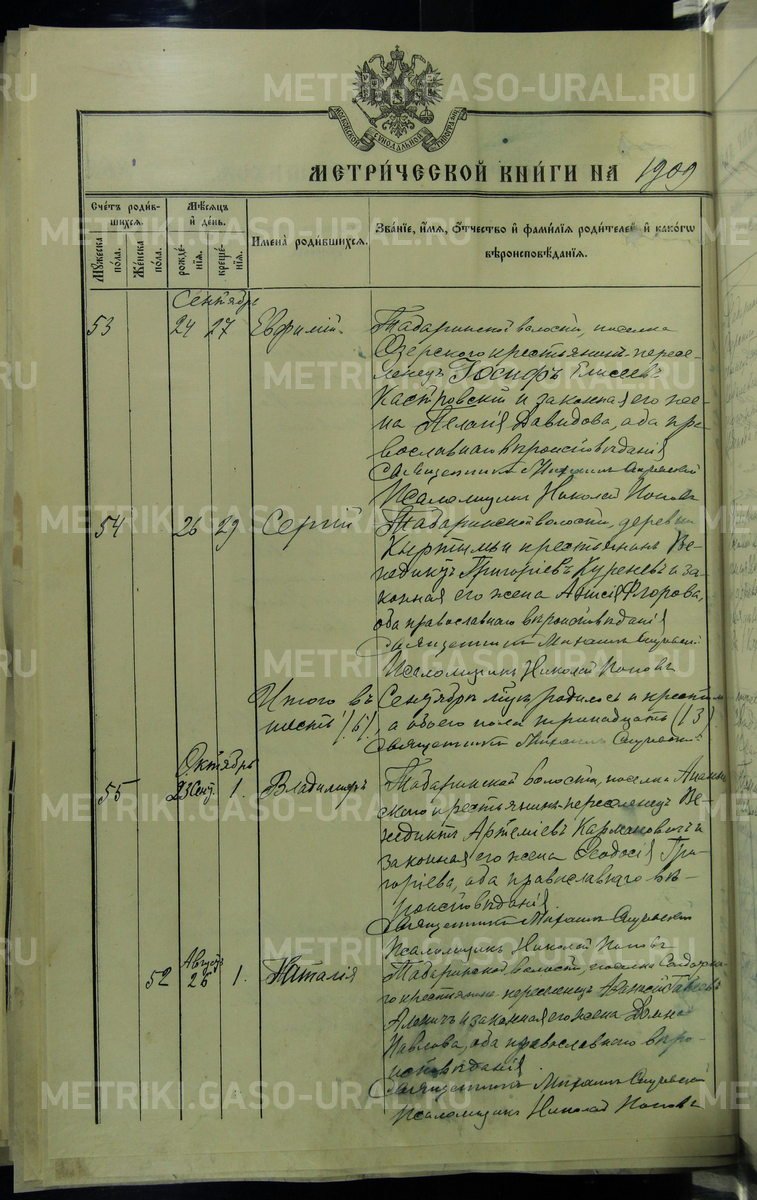 МОСКОВСКОЙ СѴНОДАЛЬНОЙ ТИПОГРАФІИ
МЕТРИ́ЧЕСКОЙ КНИ́ГИ НА 1909
Сче́тъ роди́в-
шихся.
Мꙋ́жеска
по́ла.
Же́нска
по́ла.
Мѣ́сяцъ
и҆ де́нь.
рожде́-
нїя.
креще́-
нїя.
И҆мена̀ роди́вшихся.
Зва́нїе, и҆́мя, ѻ҆́тчество и҆ фами́лїя роди́телей и҆ како́гѡ
вѣроисповѣ́данїя.
Сентябрь
53 24 27 Евфимій
Табаринской волости, поселка
Озерского крестьянинъ-пересе-
ленецъ Іосифъ Елисеевъ
Кастровскій и законная его же-
на Пелагія Давидова, оба пра-
вославнаго вѣроисповѣданія
Священникъ Михаилъ
Псаломщикъ Николай Поповъ
54 26 29 Сергій
Табаринской волости, деревни
Кыртымьи крестьянинъ Ве-
недиктъ Григоріевъ Куреневъ и за-
конная его жена Анисія Флорова,
оба православнаго вѣроисповѣданія
Священникъ Михаилъ
Псаломщикъ Николай Поповъ
Итого въ Сентябрѣ м-цѣ родилось и крестил.
шесть (6), а обоего пола тринадцать (13).
Священникъ Михаилъ
Октябрь
55 23 Сент. 1. Владимиръ
Табаринской волости, поселка
скаго крестьянинъ-переселенецъ Ве-
недиктъ Артеміевъ Кармановичъ и
законная его жена Ѳеодосія Гри-
горіева, оба православнаго вѣ-
роисповѣданія.
Священникъ Михаилъ
Псаломщикъ Николай Поповъ
Августъ
52 26 1. Наталія
Табаринской волости, поселка
го крестьянинъ переселенецъ
и законная его жена Домна
Павлова, оба православнаго вѣро-
исповѣданія
Священникъ Михаилъ
Псаломщикъ Николай Поповъ
METRIKI.GASO-URAL.RU